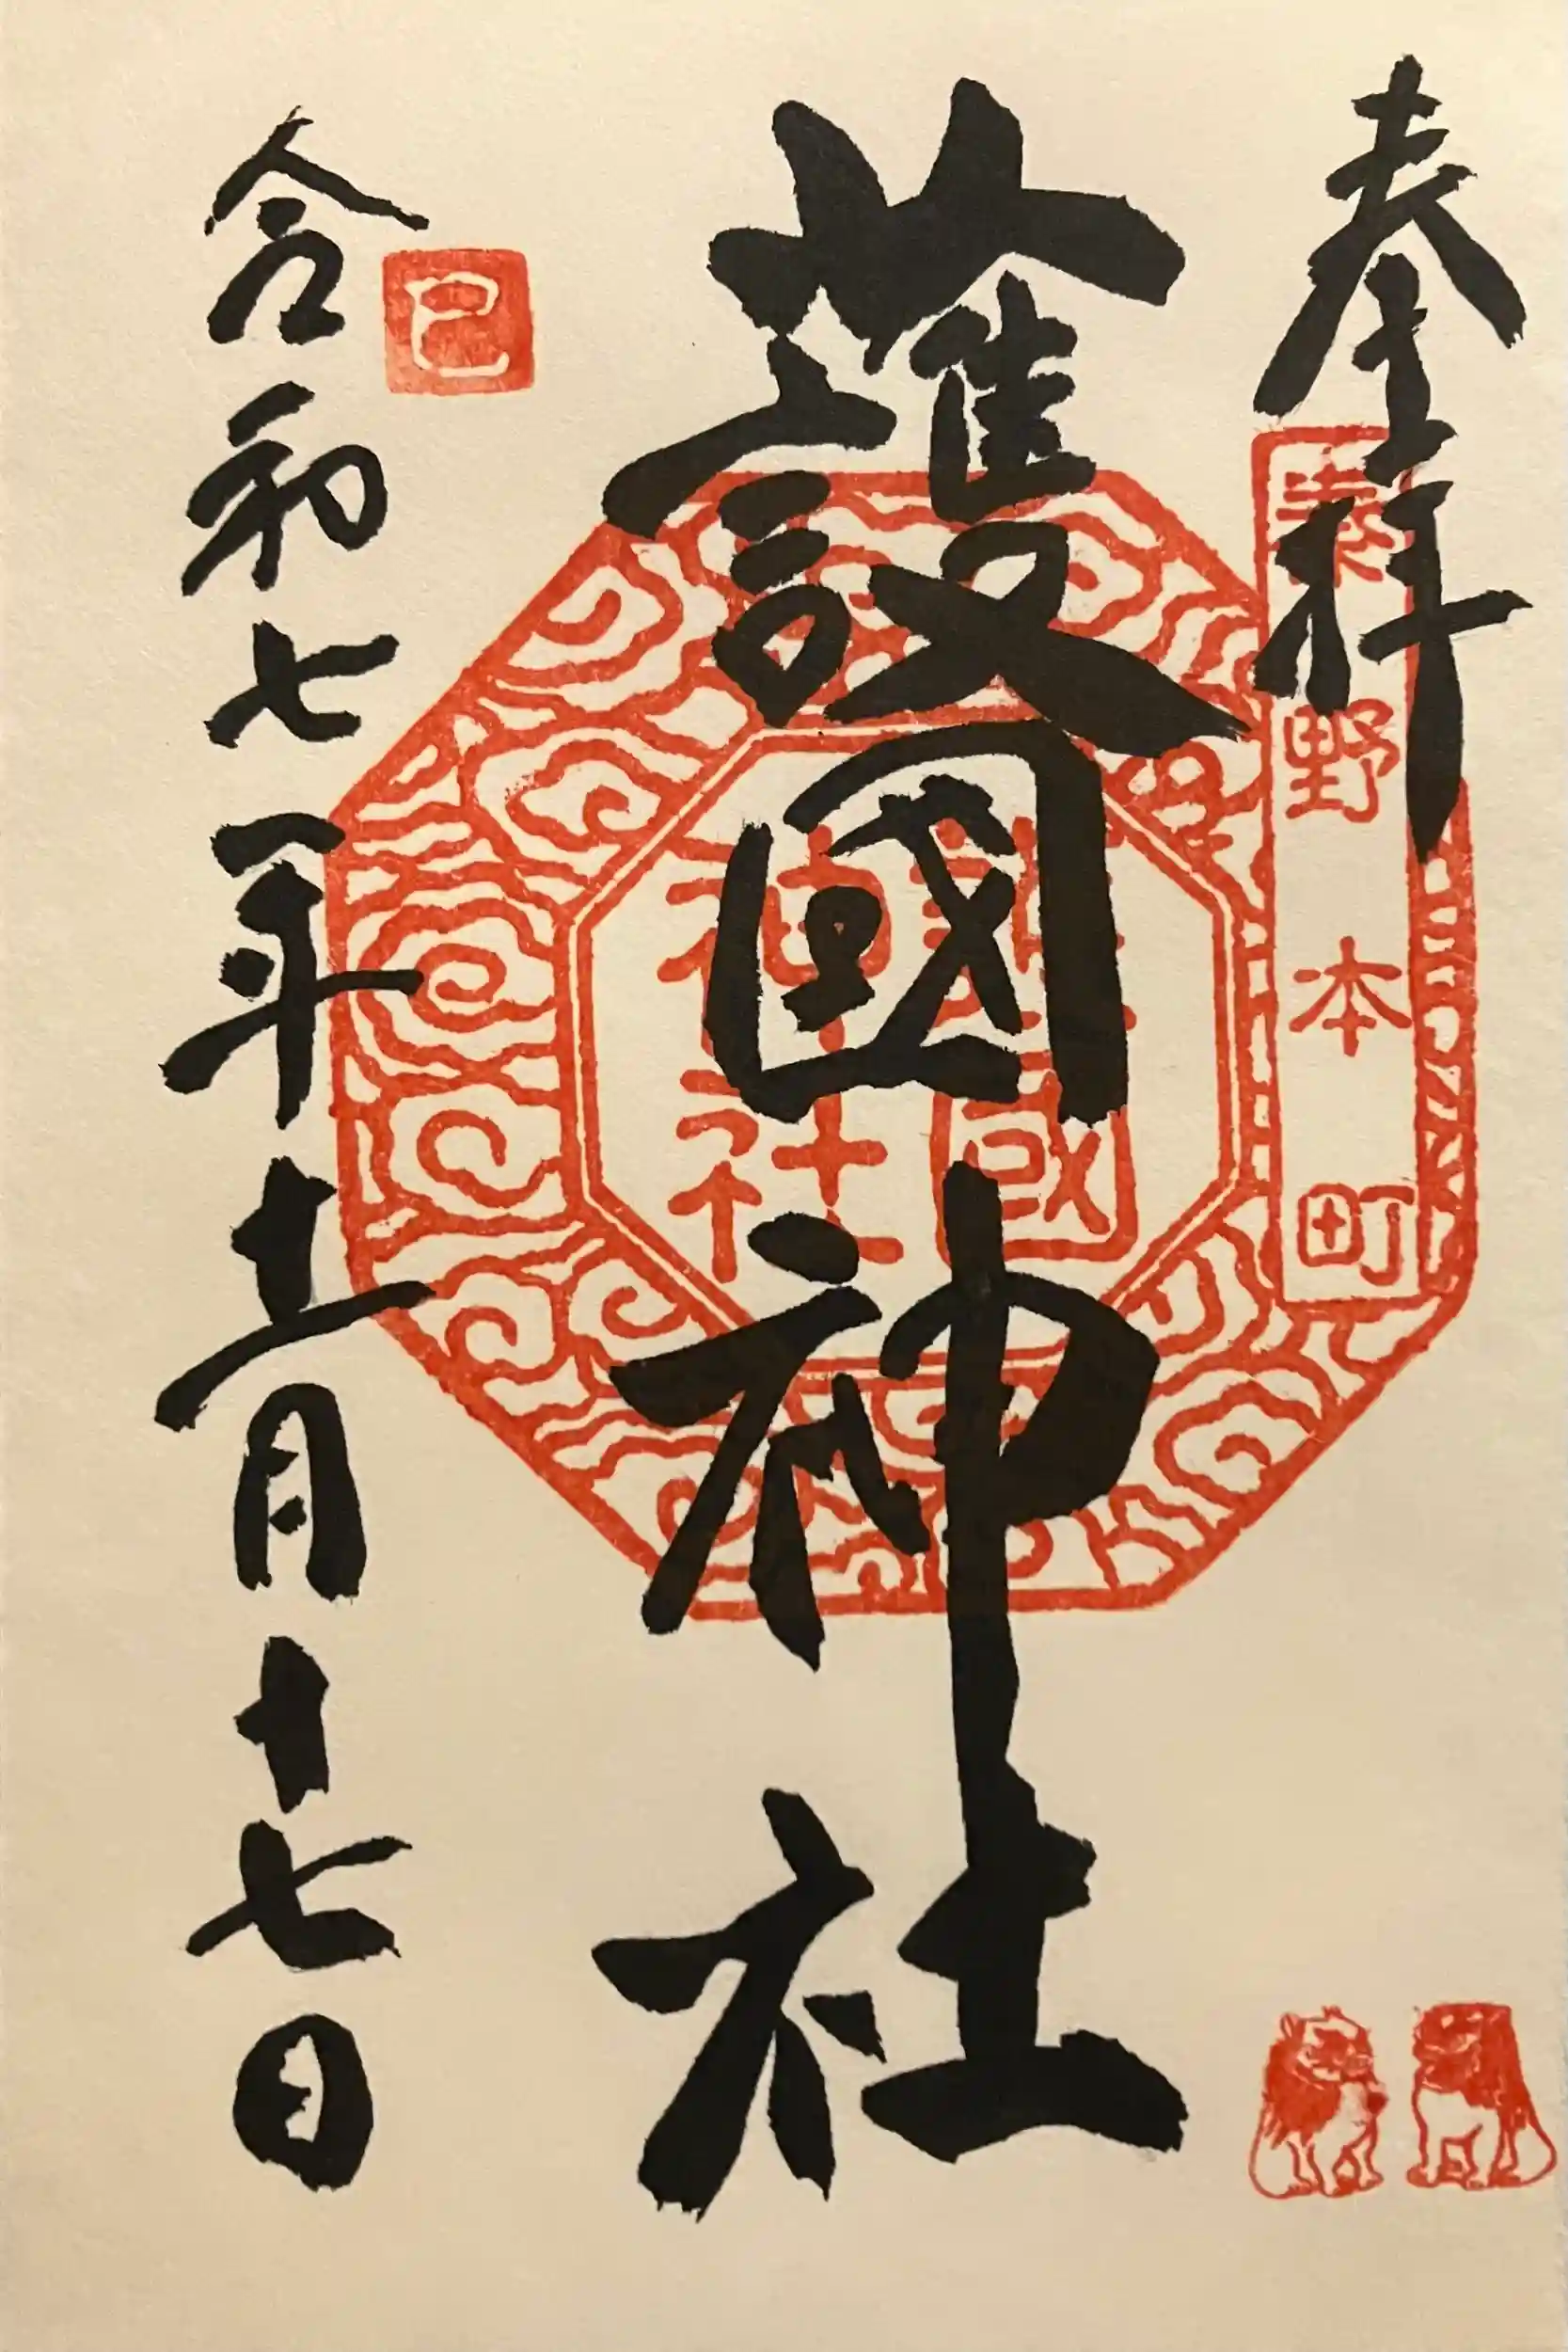 奉拝
野本町
護國神社
護國
神社
令和七年十二月十七日
巳